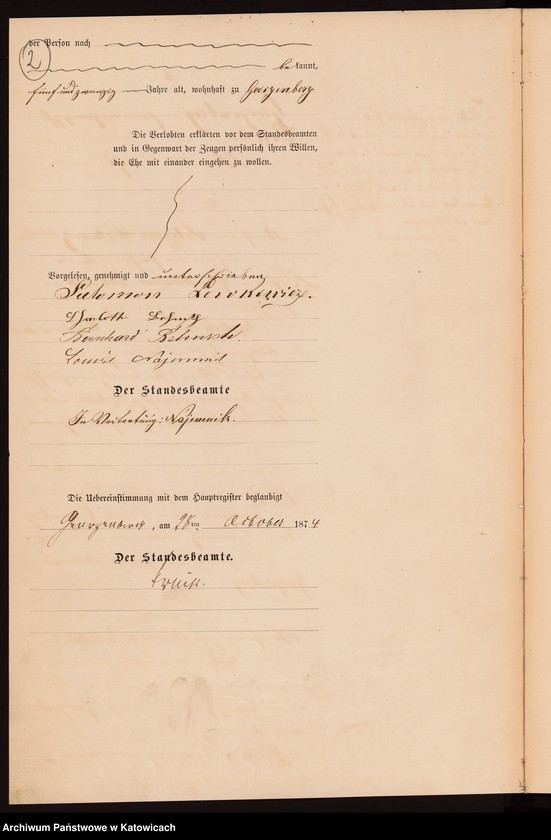 2
der Person nach
bekannt,
fünf und zwanzig Jahre alt, wohnhaft zu Georgenberg
Die Verlobten erklärten vor dem Standesbeamten
und in Gegenwart der Zeugen persönlich ihren Willen,
die Ehe mit einander eingehen zu wollen.
Vorgelesen, genehmigt und unterschrieben
Salomon Lewkowicz.
Bernhard
Louis Najemnik
Der Standesbeamte
In Vertretung: Najemnik.
Die Uebereinstimmung mit dem Hauptregister beglaubigt
Georgenberg, am ten October 1874
Der Standesbeamte.
Archiwum Państwowe w Katowicach